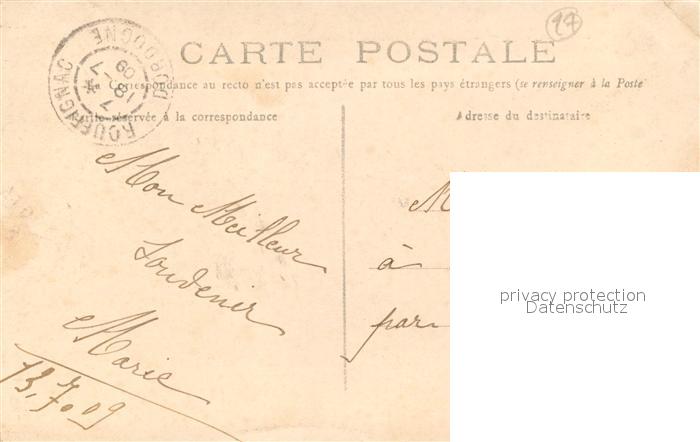 CARTE POSTALE
La Correspondance au recto n'est pas acceptée par tous les pays étrangers (se renseigner à la Poste
Partie réservée à la correspondance
Adresse du destinataire
ROUFFIGNAC
DORDOGNE
18-7
09
17
Mon Meilleur
Souvenir
Marie
13.7.09
à
par
privacy protection
Datenschutz